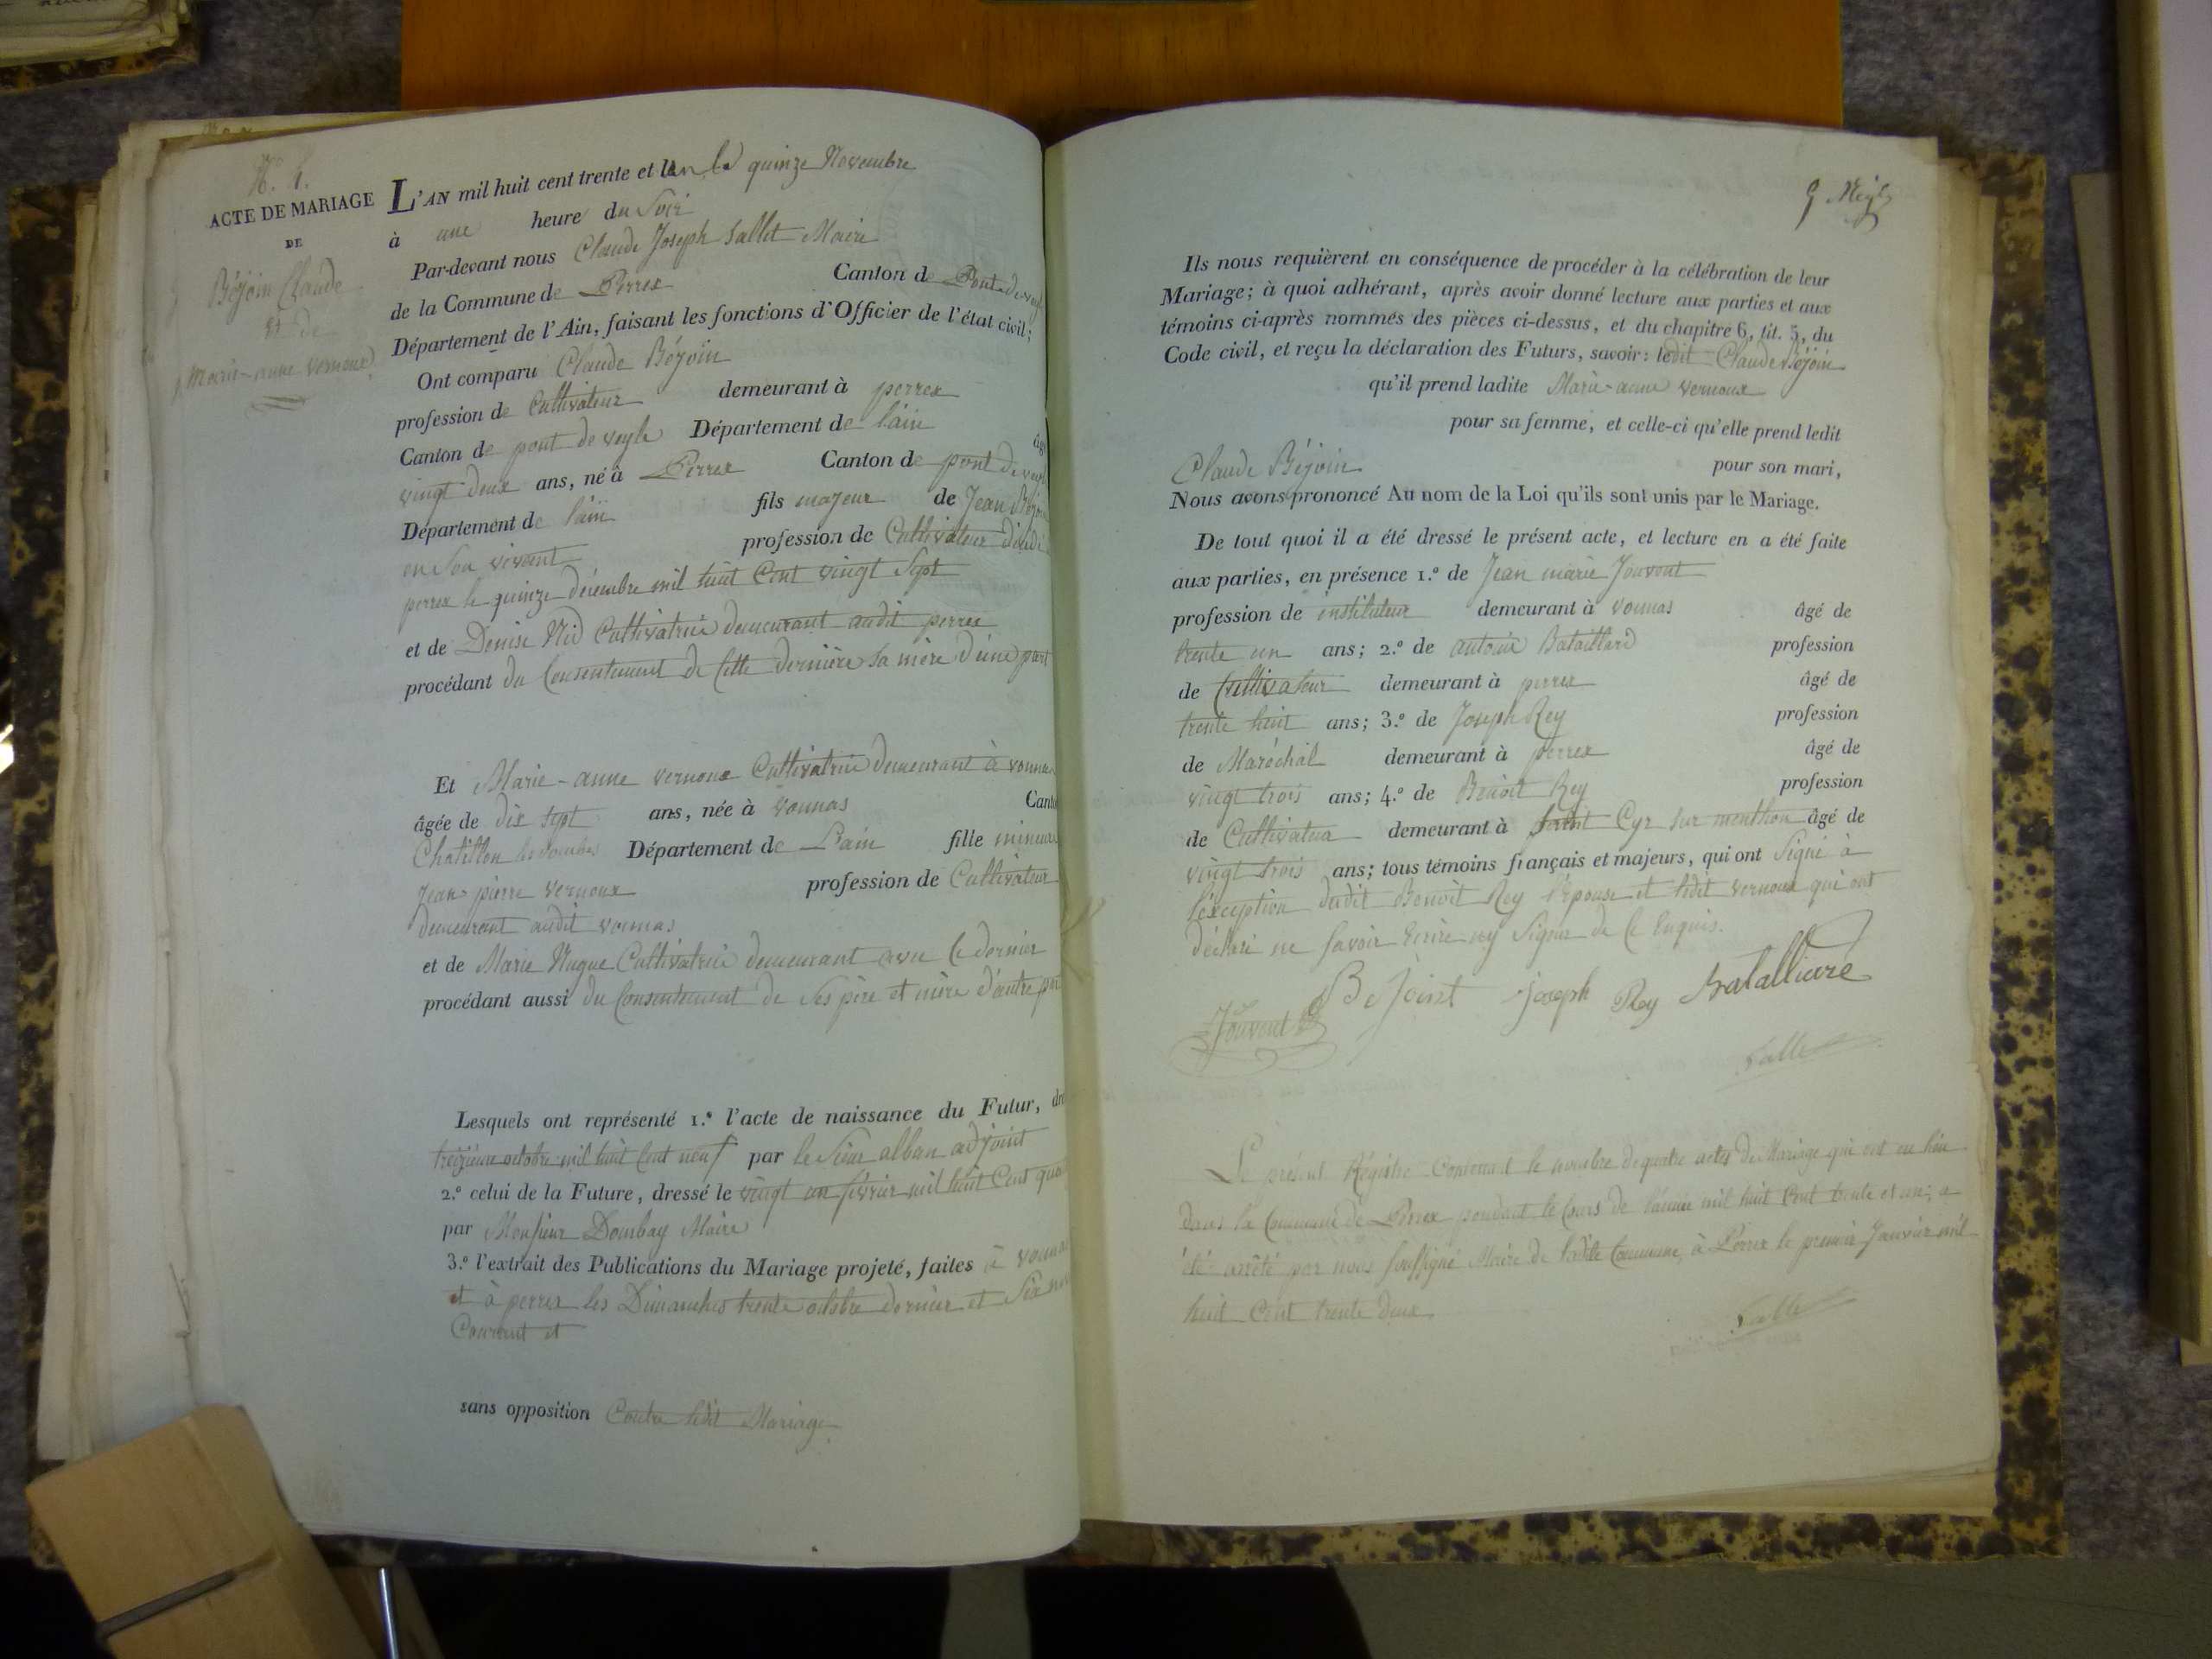 N.º 4.
ACTE DE MARIAGE
DE
Béjoin Claude
et de
Marie-anne vernoux
L'AN mil huit cent trente et un le quinze Novembre
à une heure du Soir
Par-devant nous Claude Joseph Sallet Maire
de la Commune de Perrex Canton de Pont-de-veyle
Département de l'Ain, faisant les fonctions d'Officier de l'état civil;
Ont comparu Claude Béjoin
profession de Cultivateur demeurant à perrex
Canton de pont de veyle Département de l'ain âgé
vingt deux ans, né à Perrex Canton de pont de veyle
Département de l'ain fils majeur de Jean Béjoin
en Son vivant profession de Cultivateur
perrex le quinze décembre mil huit Cent vingt Sept
et de Denise Nid Cultivatrice demeurant audit perrex
procédant du Consentement de Cette dernière Sa mère d'une part
Et Marie-anne vernoux Cultivatrice demeurant à vonnas
âgée de dix sept ans, née à vonnas Canton
Chatillon les Dombes Département de L'ain fille mineure
Jean pierre vernoux profession de Cultivateur
demeurant audit vonnas
et de Marie Nugue Cultivatrice demeurant avec Ce dernier
procédant aussi du Consentement de Ses père et mère d'autre part
Lesquels ont représenté 1.º l'acte de naissance du Futur,
treizieme octobre mil huit Cent neuf par le Sieur alban adjoint
2.º celui de la Future, dressé le vingt un fevrier mil huit Cent
par Monsieur Dombay Maire
3.º l'extrait des Publications du Mariage projeté, faites à vonnas
et à perrex les Dimanches trente octobre dernier et Six
Courrant et
sans opposition Contre ledit Mariage
Ils nous requièrent en conséquence de procéder à la célébration de leur
Mariage; à quoi adhérant, après avoir donné lecture aux parties et aux
témoins ci-après nommés des pièces ci-dessus, et du chapitre 6, tit. 5, du
Code civil, et reçu la déclaration des Futurs, savoir: ledit Claude Béjoin
qu'il prend ladite Marie-anne vernoux
pour sa femme, et celle-ci qu'elle prend ledit
Claude Béjoin pour son mari,
Nous avons prononcé Au nom de la Loi qu'ils sont unis par le Mariage.
De tout quoi il a été dressé le présent acte, et lecture en a été faite
aux parties, en présence 1.º de Jean marie Jouvent
profession de instituteur demeurant à vonnas âgé de
trente un ans; 2.º de antoine Bataillard profession
de Cultivateur demeurant à perrex âgé de
trente huit ans; 3.º de Joseph Rey profession
de Maréchal demeurant à perrex âgé de
vingt trois ans; 4.º de Benoît Rey profession
de Cultivateur demeurant à Saint Cyr sur menthon âgé de
vingt trois ans; tous témoins français et majeurs, qui ont Signé à
l'exception dudit Benoît Rey l'épouse et ledit vernoux qui ont
déclaré ne Savoir Ecrire ny Signer de Ce Enquis.
Jouvent Bejoint joseph Rey Batalliard
Salle
Le présent Régistre Contenant le nombre de quatre actes de Mariage qui ont eu lieu
dans la Commune de Perrex pendant le Cours de l'année mil huit Cent trente et un, a
été arrêté par nous Soussigné Maire de ladite Commune, à Perrex le premier Janvier mil
huit Cent trente Deux
Salle